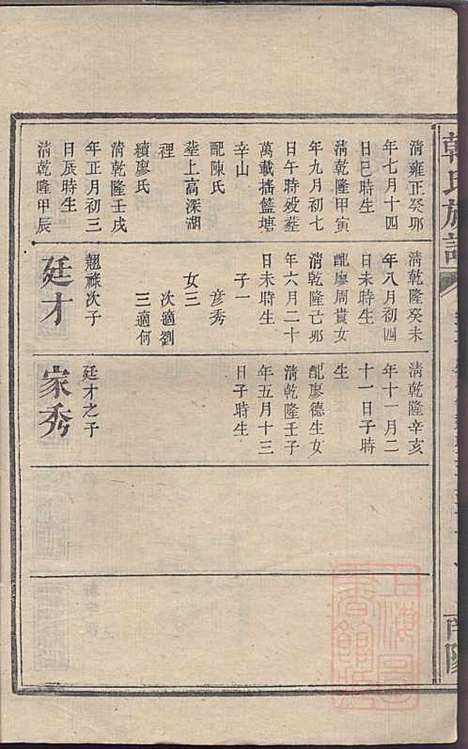 韓氏族譜
南陽
清雍正癸卯
年七月十四
日巳時生
清乾隆甲寅
年九月初七
日午時殁塟
萬載搖籃塘
辛山
配陳氏
塟上高深湖
裡
續廖氏
清乾隆壬戌
年正月初三
日辰時生
清乾隆甲辰
清乾隆癸未
年八月初四
日未時生
配廖周貴女
清乾隆己卯
年六月二十
日未時生
子一
彦秀
女三
次適劉
三適何
廷才
翹祿次子
清乾隆辛亥
年十一月二
十一日子時
生
配廖德生女
清乾隆壬子
年五月十三
日子時生
家秀
廷才之子